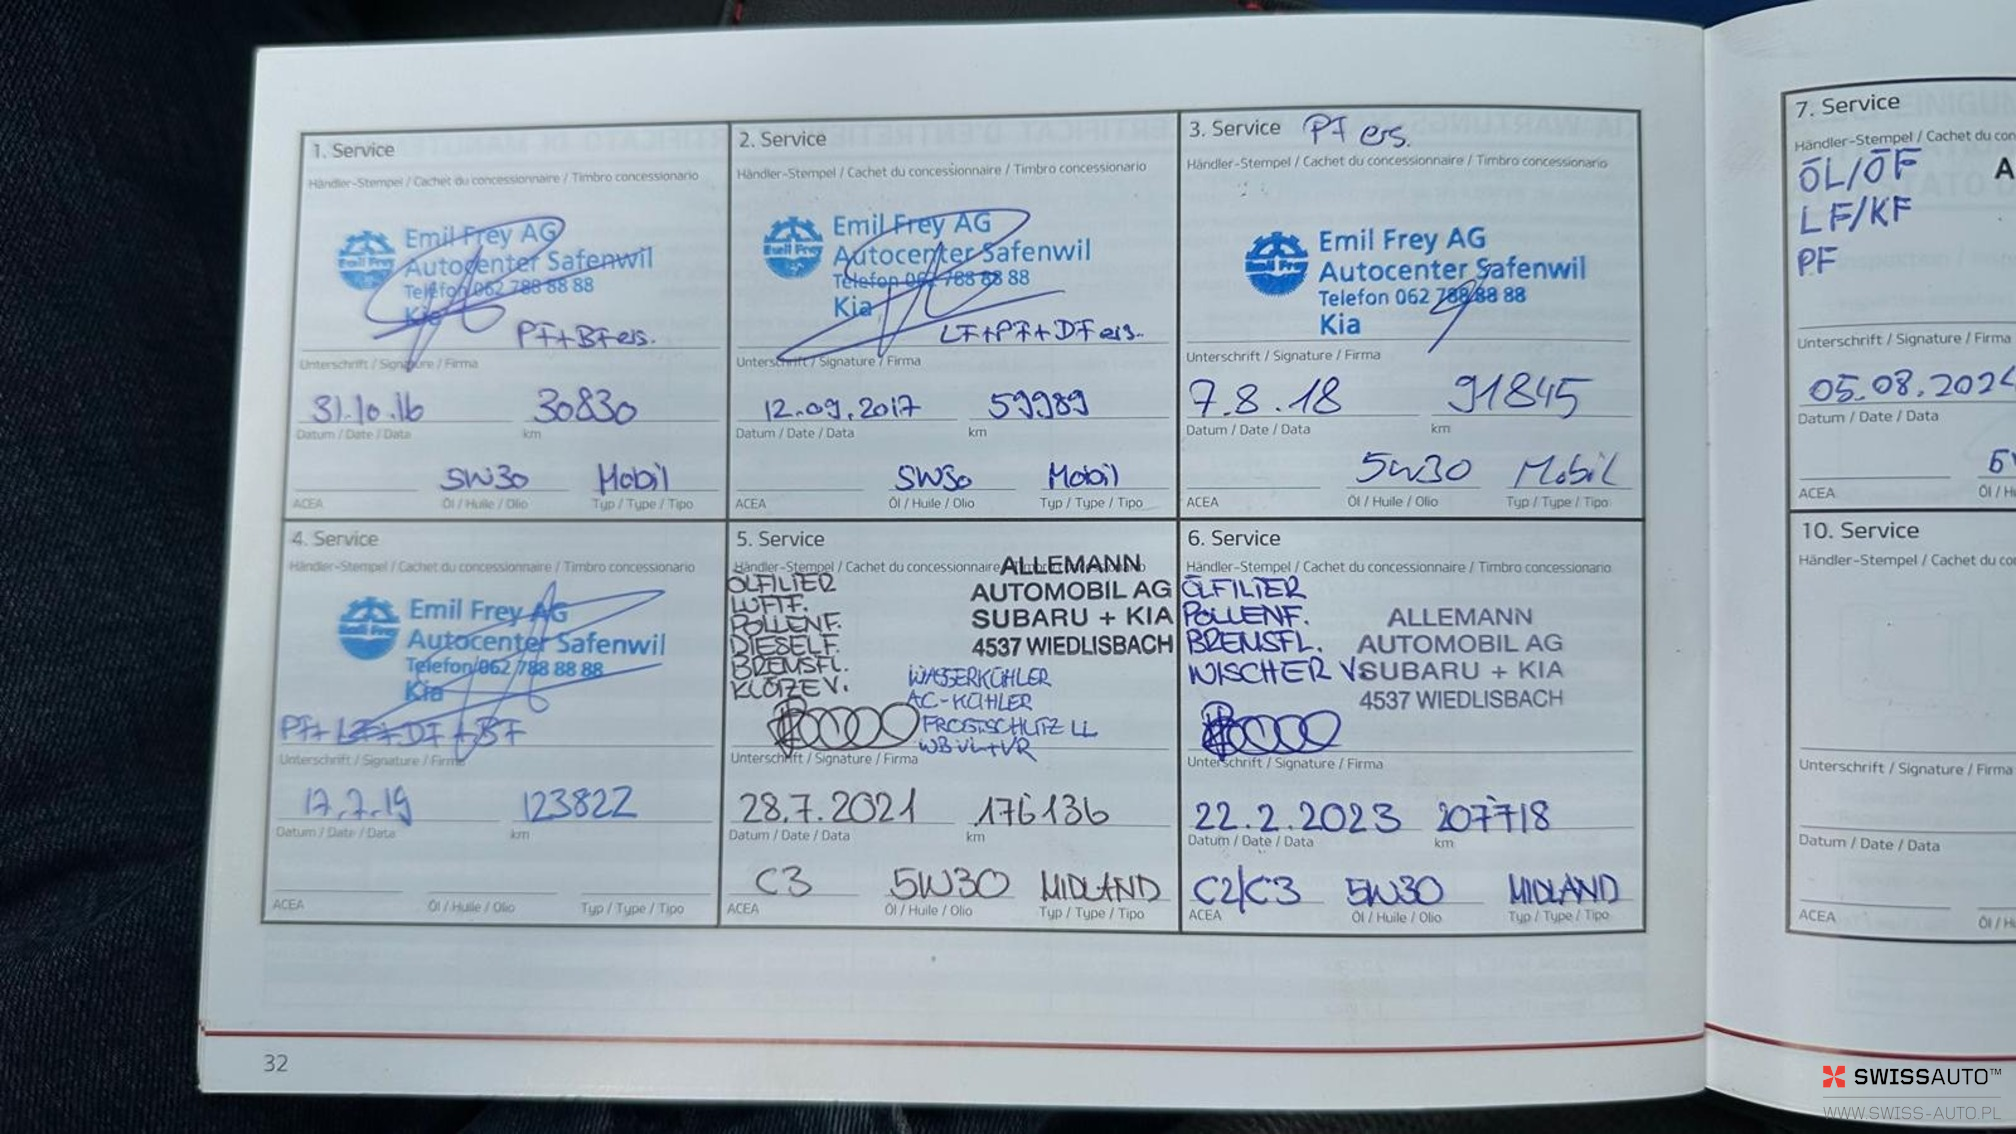 1. Service
Händler-Stempel / Cachet du concessionnaire / Timbro concessionario
Emil Frey AG
Emil Frey
Autocenter Safenwil
Telefon 062 788 88 88
Kia
PF+BF ers.
Unterschrift / Signature / Firma
31.10.16 30830
Datum / Date / Data km
5W30 Mobil
ACEA Öl / Huile / Olio Typ / Type / Tipo
2. Service
Händler-Stempel / Cachet du concessionnaire / Timbro concessionario
Emil Frey AG
Emil Frey
Autocenter Safenwil
Telefon 062 788 88 88
Kia
LF+PF+DF ers.
Unterschrift / Signature / Firma
12.09.2017 59989
Datum / Date / Data km
5W30 Mobil
ACEA Öl / Huile / Olio Typ / Type / Tipo
3. Service PF ers.
Händler-Stempel / Cachet du concessionnaire / Timbro concessionario
Emil Frey AG
Emil Frey
Autocenter Safenwil
Telefon 062 788 88 88
Kia
Unterschrift / Signature / Firma
7.8.18 91845
Datum / Date / Data km
5W30 Mobil
ACEA Öl / Huile / Olio Typ / Type / Tipo
4. Service
Händler-Stempel / Cachet du concessionnaire / Timbro concessionario
Emil Frey AG
Emil Frey
Autocenter Safenwil
Telefon 062 788 88 88
Kia
PF+LF+DF+BF
Unterschrift / Signature / Firma
17.7.19 123822
Datum / Date / Data km
ACEA Öl / Huile / Olio Typ / Type / Tipo
5. Service
Händler-Stempel / Cachet du concessionnaire
ALLEMANN
AUTOMOBIL AG
SUBARU + KIA
4537 WIEDLISBACH
ÖLFILTER
LUFTF.
POLLENF.
DIESELF.
BREMSFL.
KLÖTZE V.
WASSERKÜHLER
AC-KÜHLER
FROSTSCHUTZ LL
WB VL+VR
Unterschrift / Signature / Firma
28.7.2021 176136
Datum / Date / Data km
C3 5W30 MIDLAND
ACEA Öl / Huile / Olio Typ / Type / Tipo
6. Service
Händler-Stempel / Cachet du concessionnaire / Timbro concessionario
ÖLFILTER
POLLENF.
BREMSFL.
WISCHER V
ALLEMANN
AUTOMOBIL AG
SUBARU + KIA
4537 WIEDLISBACH
Unterschrift / Signature / Firma
22.2.2023 207718
Datum / Date / Data km
C2/C3 5W30 MIDLAND
ACEA Öl / Huile / Olio Typ / Type / Tipo
32
7. Service
Händler-Stempel / Cachet du con
ÖL/ÖF A
LF/KF
PF
Unterschrift / Signature / Firma
05.08.2024
Datum / Date / Data
ACEA Öl / H
10. Service
Händler-Stempel / Cachet du co
Unterschrift / Signature / Firma
Datum / Date / Data
ACEA Öl / H
SWISSAUTO™
WWW.SWISS-AUTO.PL